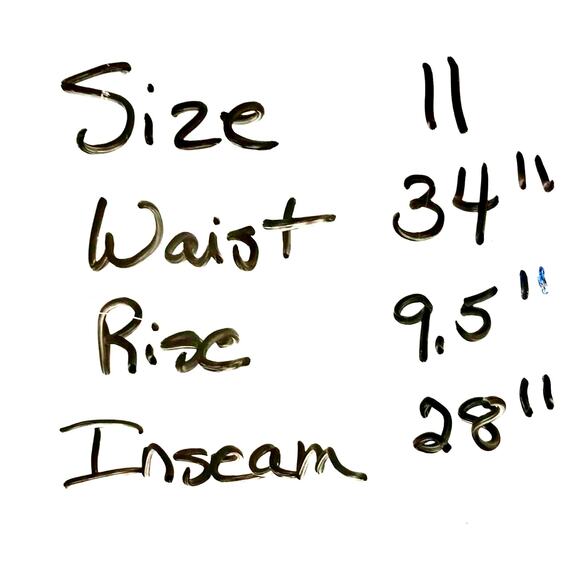 Size 11
Waist 34"
Rise 9.5"
Inseam 28"